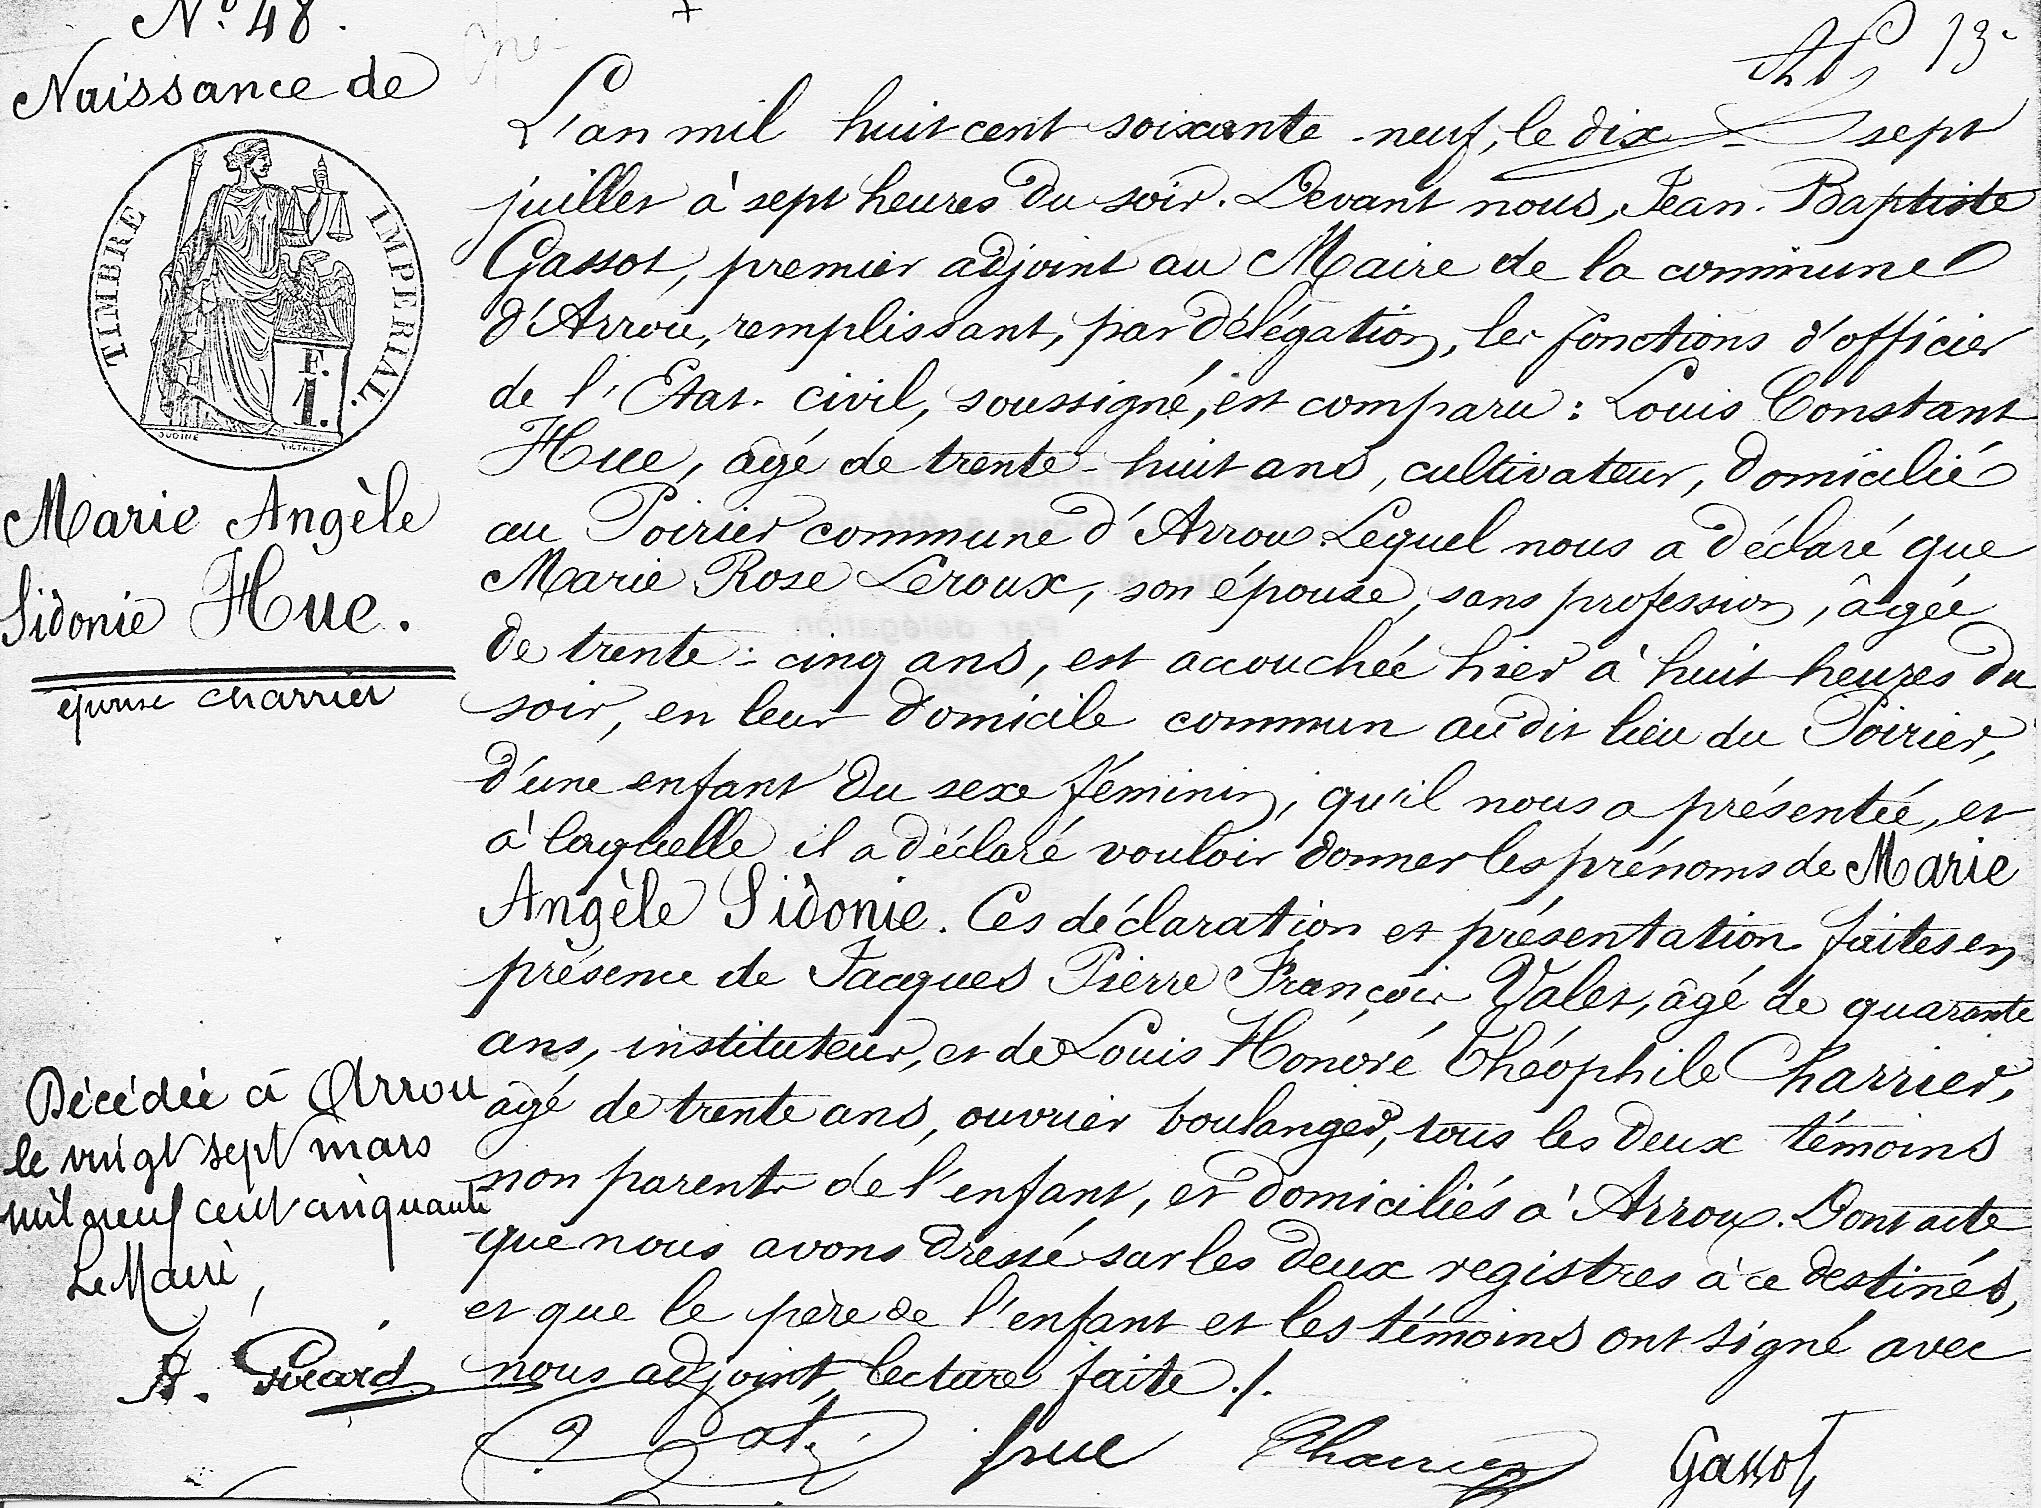 N.º 48.
Naissance de
TIMBRE IMPERIAL.
F.
1.
Marie Angèle
Sidonie Hue.
épouse charrier
Décédée à Arrou
le vingt sept mars
mil neuf cent cinquante
Le Maire,
A. Picard
13
L'an mil huit cent soixante-neuf, le dix-sept
juillet à sept heures du soir. Devant nous, Jean-Baptiste
Gassot, premier adjoint au Maire de la commune
d'Arrou, remplissant, par délégation, les fonctions d'officier
de l'Etat-civil, soussigné, est comparu : Louis Constant
Hue, âgé de trente-huit ans, cultivateur, domicilié
au Poirier commune d'Arrou. Lequel nous a déclaré que
Marie Rose Leroux, son épouse, sans profession, âgée
de trente-cinq ans, est accouchée hier à huit heures du
soir, en leur domicile commun audit lieu du Poirier,
d'une enfant du sexe féminin, qu'il nous a présentée, et
à laquelle il a déclaré vouloir donner les prénoms de Marie
Angèle Sidonie. Ces déclaration et présentation faites en
présence de Jacques Pierre François Valet, âgé de quarante
ans, instituteur, et de Louis Honoré Théophile Charrier,
âgé de trente ans, ouvrier boulanger, tous les deux témoins
non parents de l'enfant, et domiciliés à Arrou. Dont acte
que nous avons dressé sur les deux registres à ce destinés,
et que le père de l'enfant et les témoins ont signé avec
nous adjoint, lecture faite ./.
hue Charrier Gassot